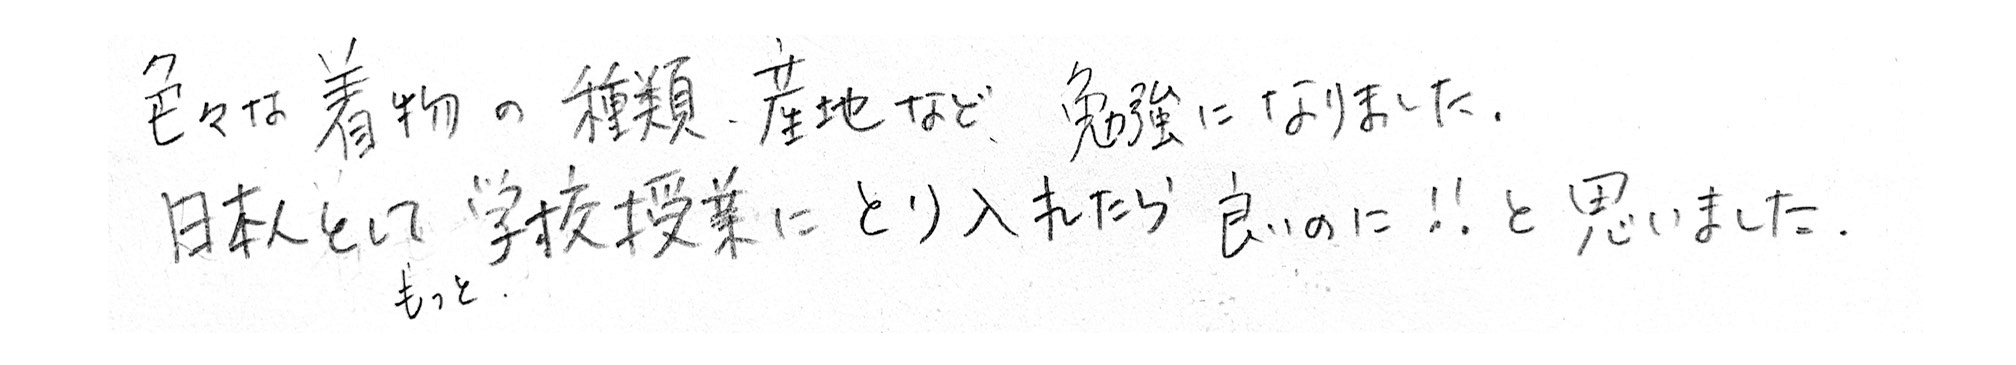 色々な着物の種類、産地など、勉強になりました。
日本人として学校授業にとり入れたら良いのに!!と思いました。
もっと。